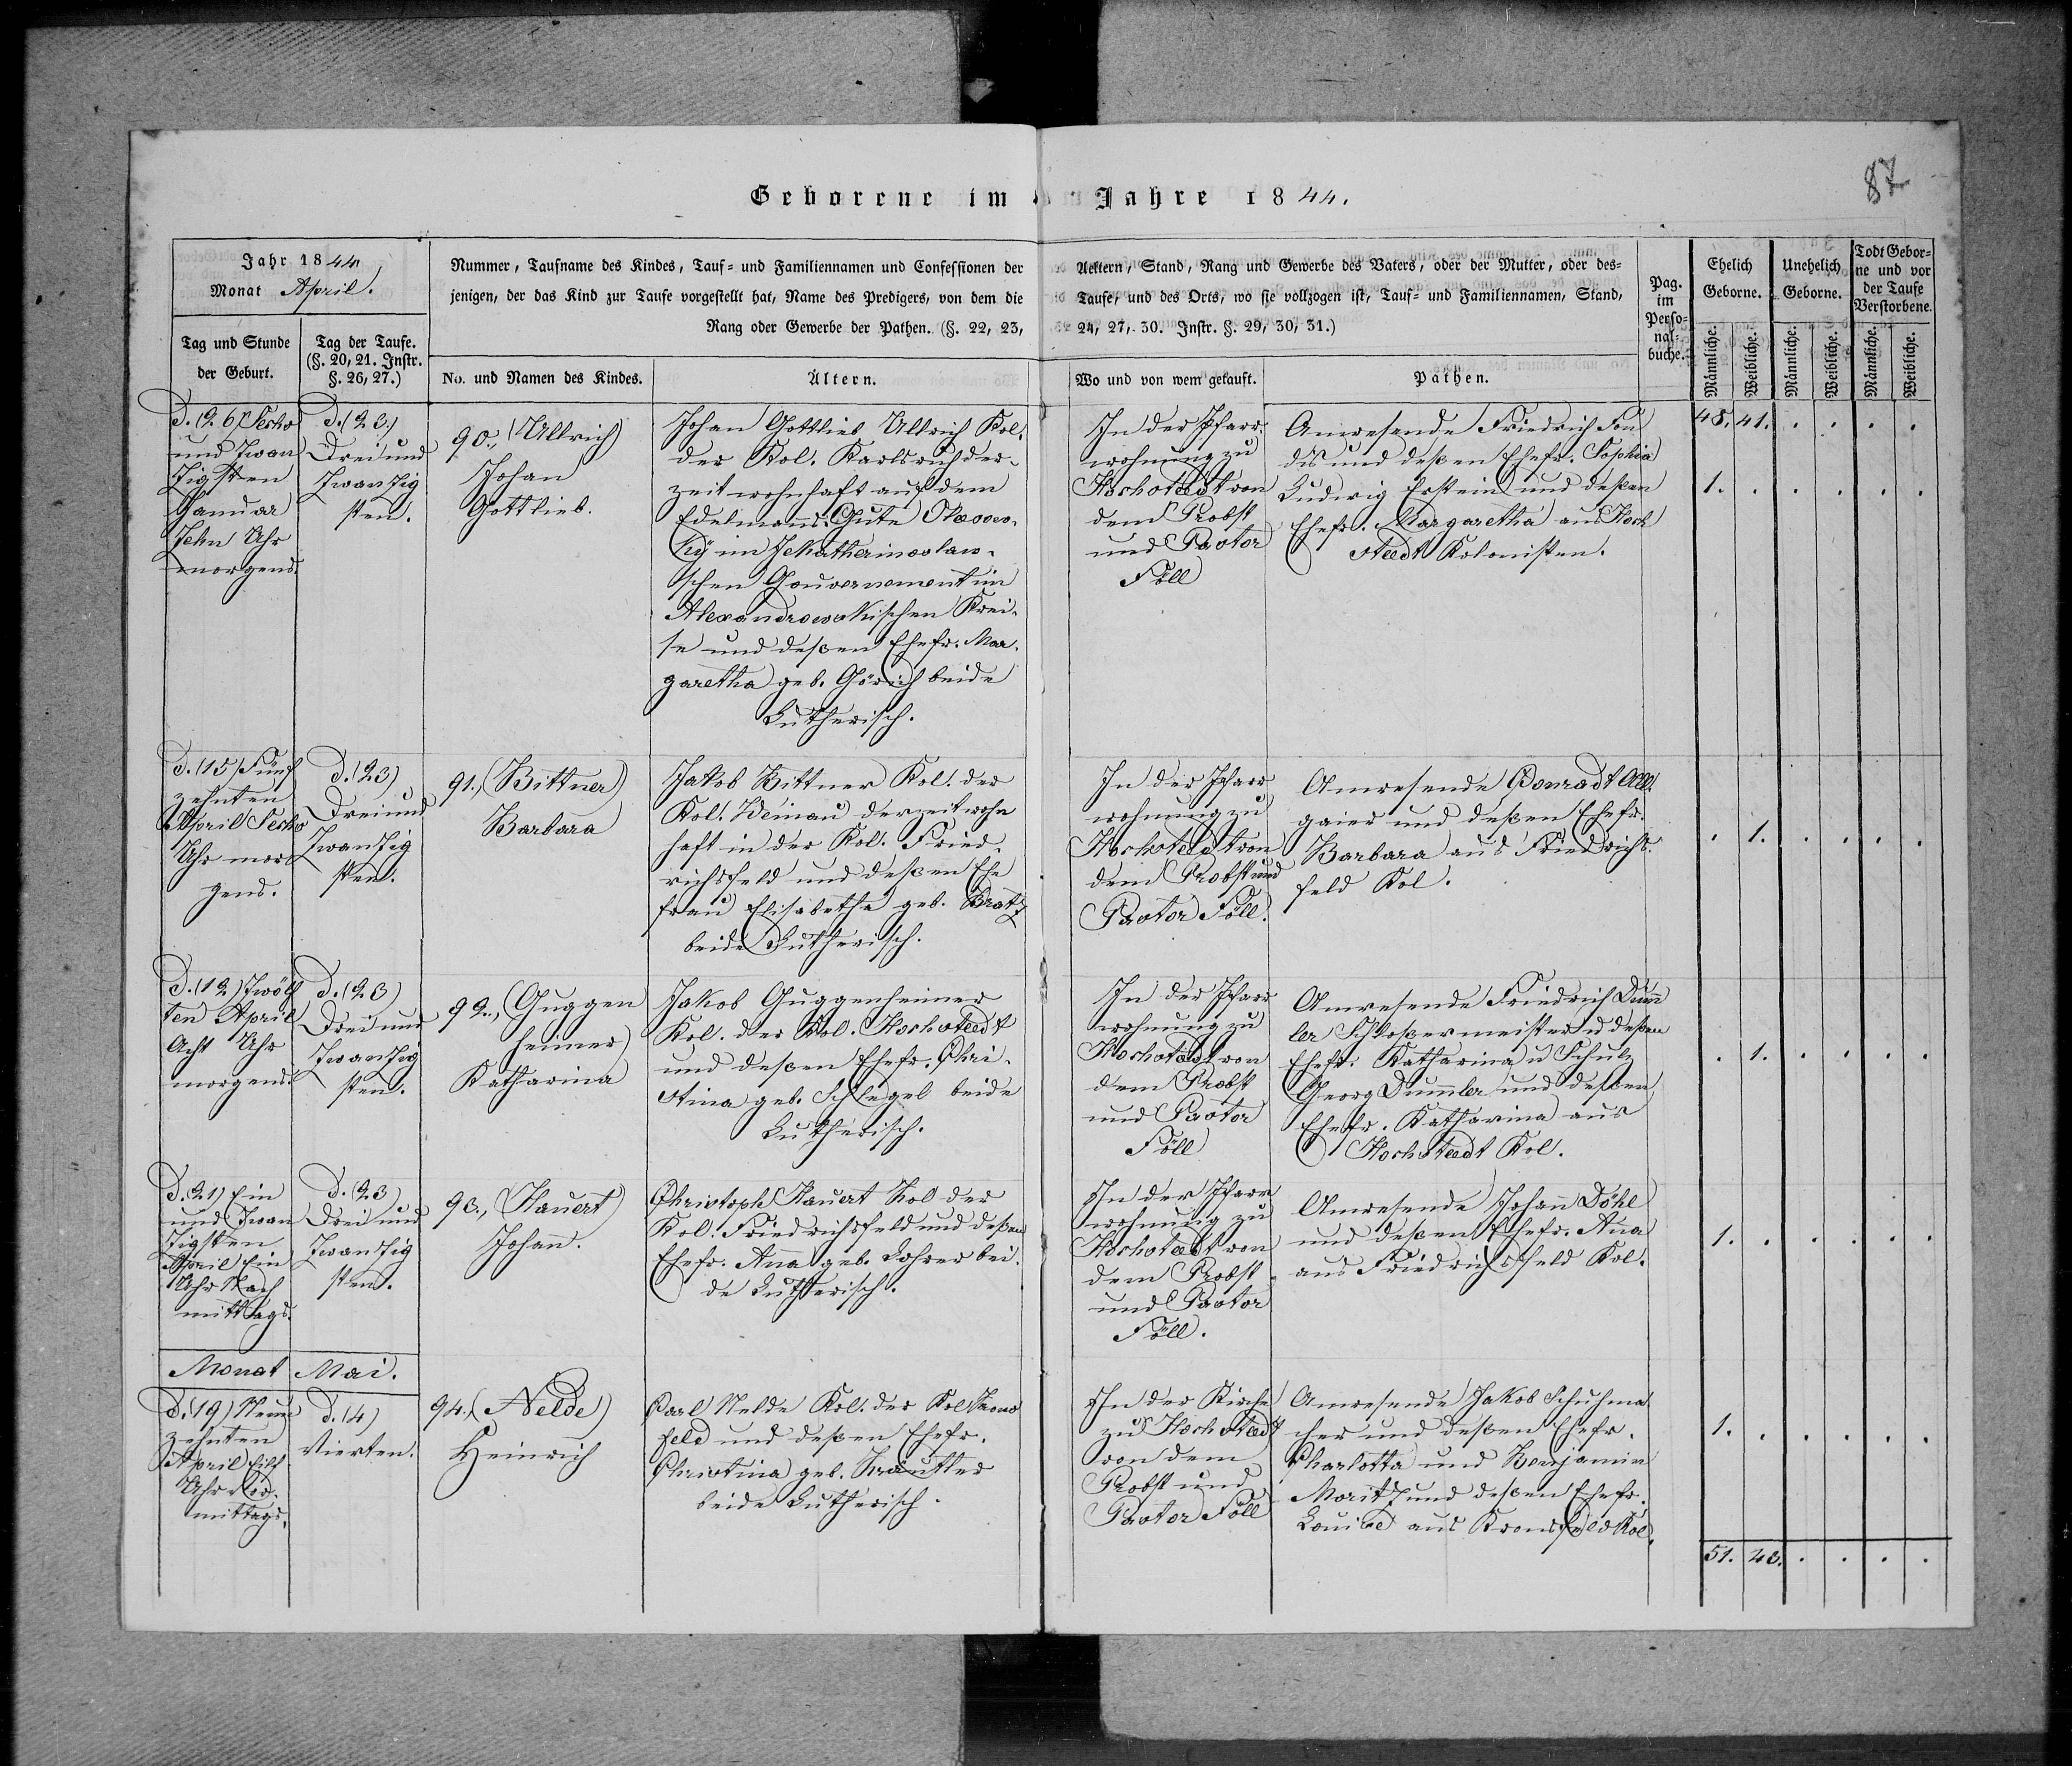 87
Geborene im Jahre 1844.
Jahr 1844
Monat April.
Tag und Stunde
der Geburt.
Tag der Taufe.
(§. 20, 21. Instr.
§. 26, 27.)
Nummer, Taufname des Kindes, Tauf- und Familiennamen und Confessionen der
jenigen, der das Kind zur Taufe vorgestellt hat, Name des Predigers, von dem die
Rang oder Gewerbe der Pathen. (§. 22, 23,
No. und Namen des Kindes.
Ältern.
Aeltern, Stand, Rang und Gewerbe des Vaters, oder der Mutter, oder des-
Taufe, und des Orts, wo sie vollzogen ist, Tauf- und Familiennamen, Stand,
24, 27, 30. Instr. §. 29, 30, 31.)
Wo und von wem getauft.
Pathen.
Pag.
im
Perso-
nal-
buche.
Ehelich
Geborne.
Unehelich
Geborne.
Todt Gebor-
ne und vor
der Taufe
Verstorbene.
Männliche.
Weibliche.
Männliche.
Weibliche.
Männliche.
Weibliche.
D. (26) Sechs
und Zwan
zigsten
Januar
Zehn Uhr
morgens.
D. (23)
Drei und
Zwanzig
sten.
90., (Ullrich)
Johan
Gottlieb.
Johan Gottlieb Ullrich Kol.
der Kol. Karlsruh der-
zeit wohnhaft auf dem
Edelmans Gute
im Jekatherinoslaw-
schen Gouvernement im
Alexandrowskischen Krei-
se und deßen Ehefr. Mar-
garetha geb. Görich beide
Lutherisch.
In der Pfarr
wohnung zu
Hochstædt von
dem Probst
und Pastor
Föll
Anwesende Friedrich
und deßen Ehefr. Sophia
Ludwig Erstein und deßen
Ehefr. Margaretha aus Hoch
stædt Kolonisten.
48. 41. . . . .
1. . . . . .
D. (15) Fünf
zehnten
April Sechs
Uhr mor
gens.
D. (23)
Drei und
Zwanzig
sten.
91., (Bittner)
Barbara
Jakob Bittner Kol. der
Kol. Weinau derzeit wohn
haft in der Kol. Fried-
richsfeld und deßen Ehe
frau Elisabetha geb. Bratz
beide Lutherisch.
In der Pfarr
wohnung zu
Hochstædt von
dem Probst und
Pastor Föll.
Anwesende Conradt All-
gaier und deßen Ehefr.
Barbara aus Friedrichs-
feld Kol.
. 1. . . . .
D. (12) Zwölf
ten April
Acht Uhr
morgens.
D. (23)
Drei und
Zwanzig
sten.
92., (Guggen
heimer)
Katharina
Jakob Guggenheimer
Kol. der Kol. Hochstædt
und deßen Ehefr. Chri-
stina geb. Schlegel beide
Lutherisch.
In der Pfarr
wohnung zu
Hochstædt von
dem Probst
und Pastor
Föll
Anwesende Friedrich Dum̄
ler Schloßermeister u deßen
Ehefr. Katharina u Schulz
Georg Dum̄ler und deßen
Ehefr. Katharina aus
Hochstædt Kol.
. 1. . . . .
D. (21) Ein
und Zwan
zigsten
April Ein
Uhr Nach
mittags.
D. (23)
Drei und
Zwanzig
sten.
93., (Hauert)
Johan̄.
Christoph Hauert Kol der
Kol. Friedrichsfeld und deßen
Ehefr. An̄a geb. Lohrer bei-
de Lutherisch.
In der Pfarr
wohnung zu
Hochstædt von
dem Probst
und Pastor
Föll.
Anwesende Johan̄ Döhl
und deßen Ehefr. An̄a
aus Friedrichsfeld Kol.
1. . . . . .
Monat Mai.
D. (19) Neun
zehnten
April Eilf
Uhr Vor-
mittags.
D. (4)
Vierten.
94., (Nelde)
Heinrich
Carl Nelde Kol. der Kol Krons
feld und deßen Ehefr.
Christina geb. Kräutter
beide Lutherisch.
In der Kirche
zu Hochstædt
von dem
Probst und
Pastor Föll
Anwesende Jakob Schuhma
cher und deßen Ehefr.
Charlotta und Benjamin
Moritz und deßen Ehefr.
Louise aus Kronsfeld Kol.
1. . . . . .
51. 43. . . . .